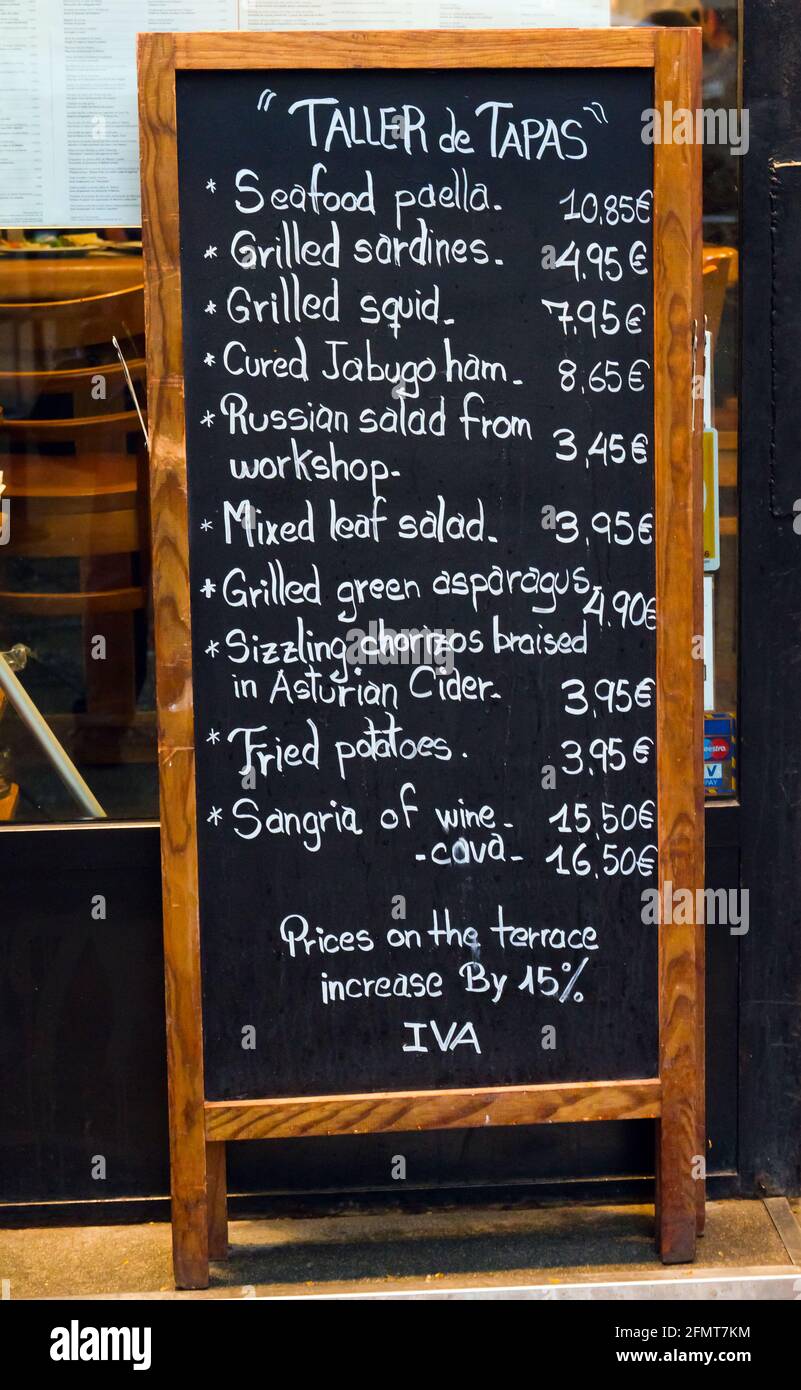 "TALLER de TAPAS"
* Seafood paella. 10,85€
* Grilled sardines. 4,95€
* Grilled squid. 7,95€
* Cured Jabugo ham. 8,65€
* Russian salad from
workshop. 3,45€
* Mixed leaf salad. 3,95€
* Grilled green asparagus. 4,90€
* Sizzling chorizos braised
in Asturian Cider. 3,95€
* Fried potatoes. 3,95€
* Sangria of wine. 15,50€
- cava - 16,50€
Prices on the terrace
increase By 15%
IVA
Maestro
V PAY
alamy
Image ID: 2FMT7KM
www.alamy.com